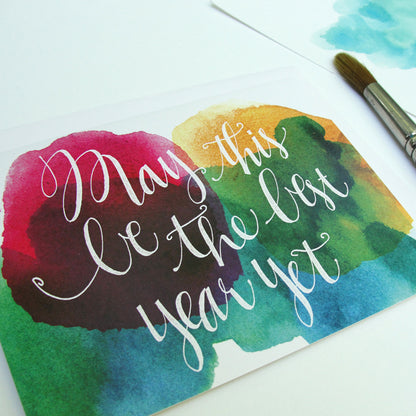 May this
be the best
year yet